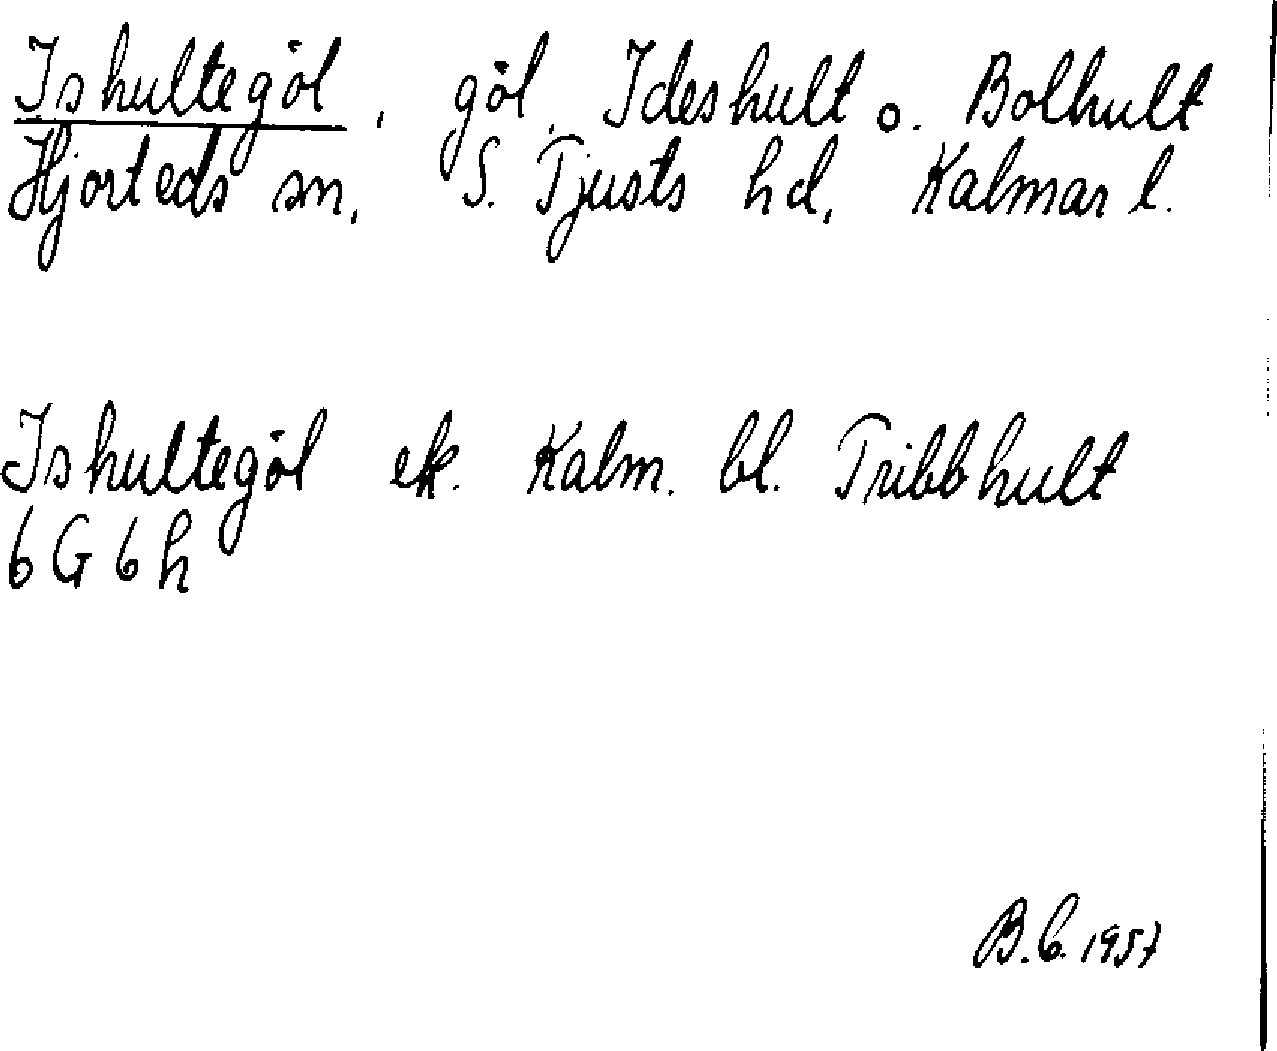 Ishultegöl, göl, Ideshult o. Bolhult
Hjorteds sn, S. Tjusts hd, Kalmar l.
Ishultegöl ek. Kalm. bl. Tribbhult
6 G 6 h
B.C. 1957